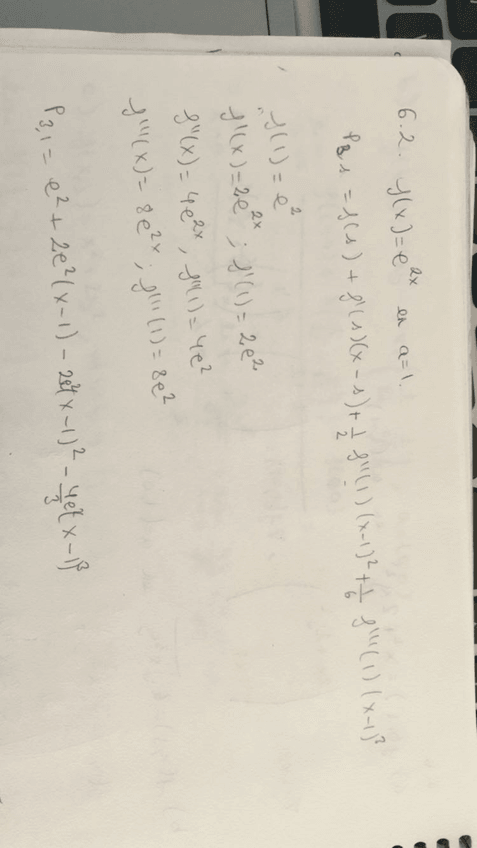 6.2. f(x) = e^{2x} en a=1.
P_{3,1} = f(1) + f'(1)(x-1) + \frac{1}{2} f''(1)(x-1)^2 + \frac{1}{6} f'''(1)(x-1)^3
f(1) = e^2
f'(x) = 2e^{2x} ; f'(1) = 2e^2
f''(x) = 4e^{2x} , f''(1) = 4e^2
f'''(x) = 8e^{2x} ; f'''(1) = 8e^2
P_{3,1} = e^2 + 2e^2(x-1) - 2e^2(x-1)^2 - \frac{4e^2}{3}(x-1)^3